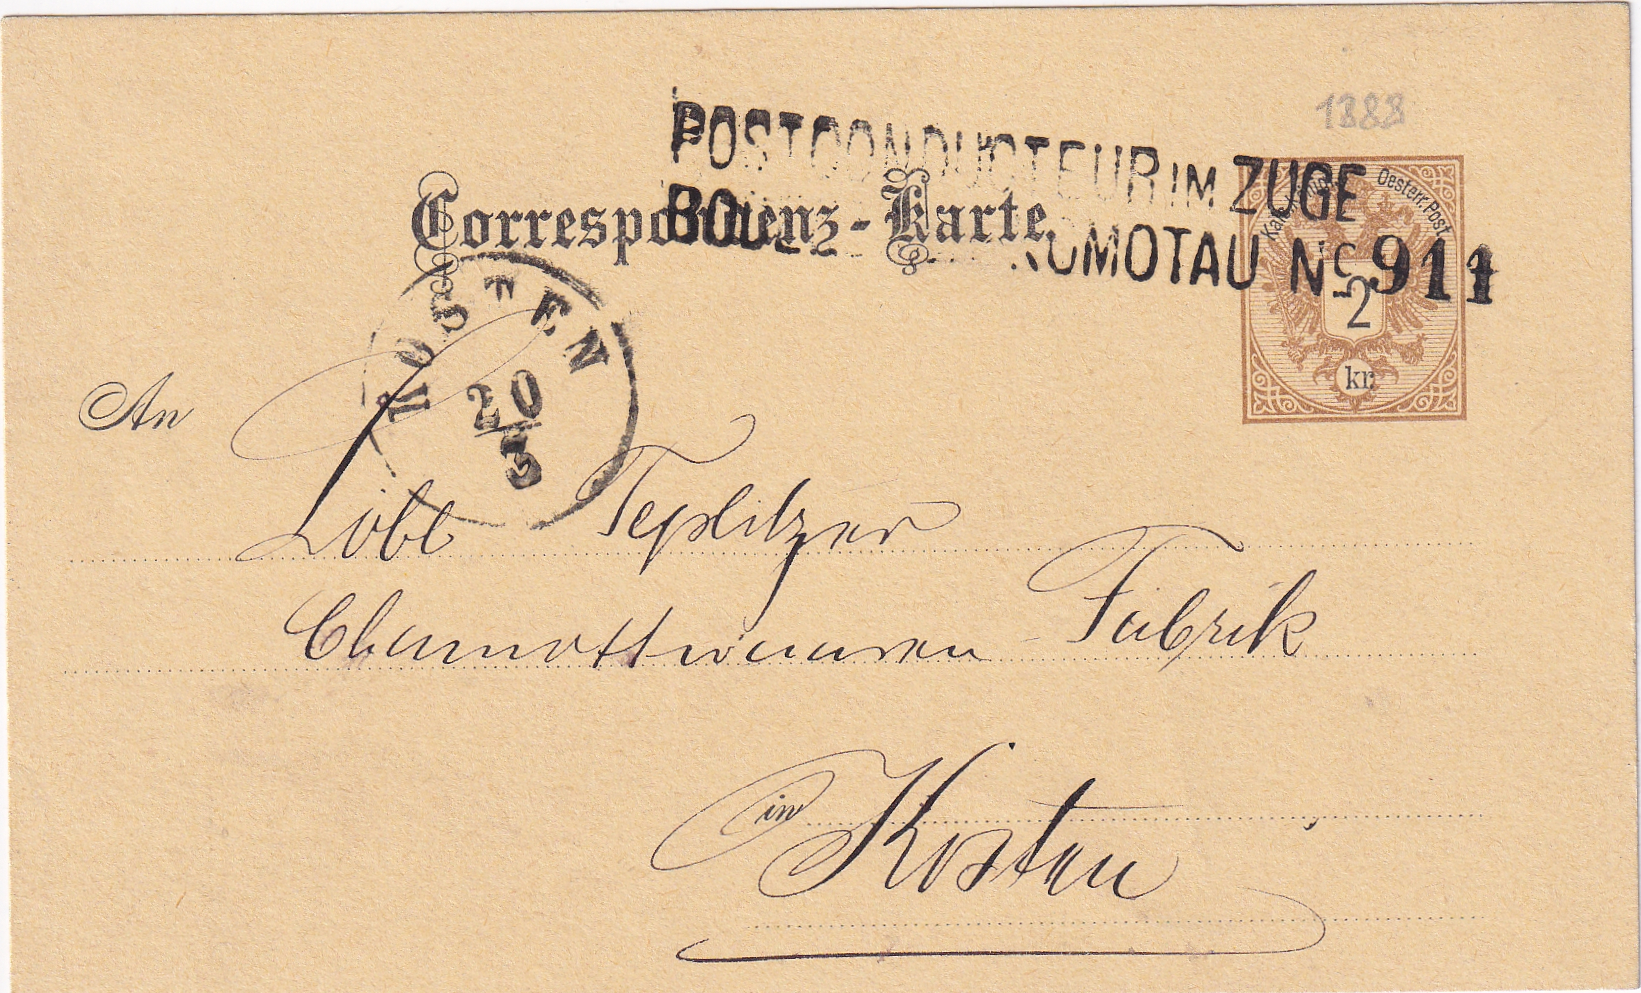 1888
POSTCONDUCTEUR IM ZUGE
KOMOTAU No 911
Correspondenz-Karte.
Kais. Kön. Oesterr. Post.
2
kr.
KOSTEN
20
3
An
Löbl Teplitzer
Chamottwaaren-Fabrik
in Kosten